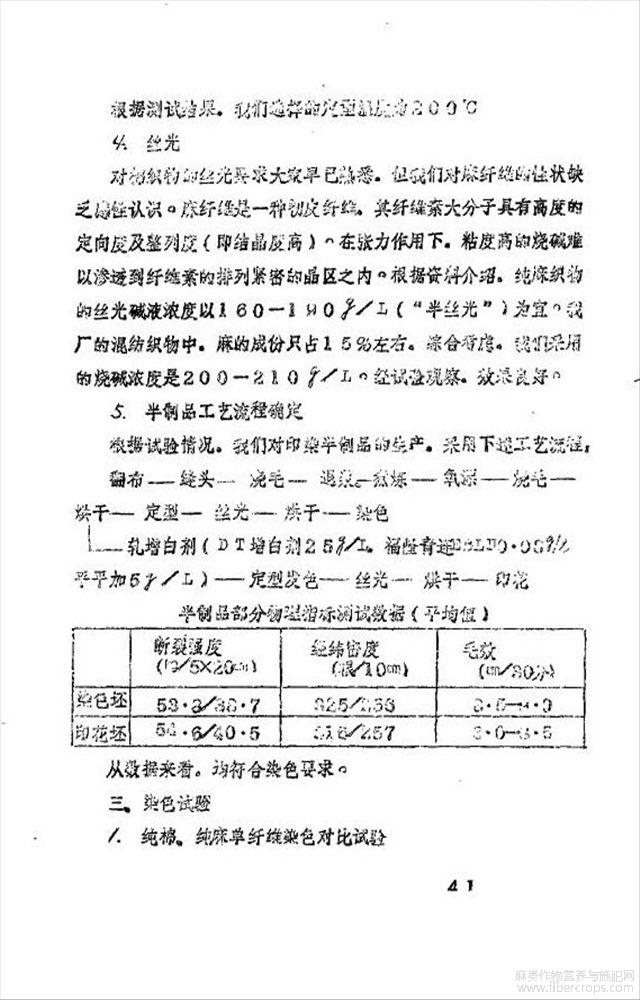 根据测试结果。我们选择的定型温度为200℃
4. 丝光
对棉织物的丝光要求大家早已熟悉。但我们对麻纤维的性状缺
乏感性认识。麻纤维是一种韧皮纤维。其纤维素大分子具有高度的
定向度及整列度(即结晶度高)。在张力作用下。粘度高的烧碱难
以渗透到纤维素的排列紧密的晶区之内。根据资料介绍。纯麻织物
的丝光碱液浓度以160—190g/L(“半丝光”)为宜。我
厂的混纺织物中。麻的成份只占15%左右。综合考虑。我们采用
的烧碱浓度是200—210g/L。经试验观察。效果良好。
5. 半制品工艺流程确定
根据试验情况。我们对印染半制品的生产。采用下述工艺流程:
翻布—缝头—烧毛—退浆—煮炼—氧漂—烧毛—
烘干—定型—丝光—烘干—染色
轧增白剂(DT增白剂25g/L。福隆青莲
平平加5g/L)—定型发色—丝光—烘干—印花
半制品部分物理指标测试数据(平均值)
断裂强度 经纬密度 毛效
(/5×20cm) (根/10cm) (cm/30分)
染色坯
印花坯 54.6/40.5
从数据来看。均符合染色要求。
三、染色试验
1. 纯棉、纯麻单纤维染色对比试验
41
麻类作物营养与施肥网
www.fibercrops.com